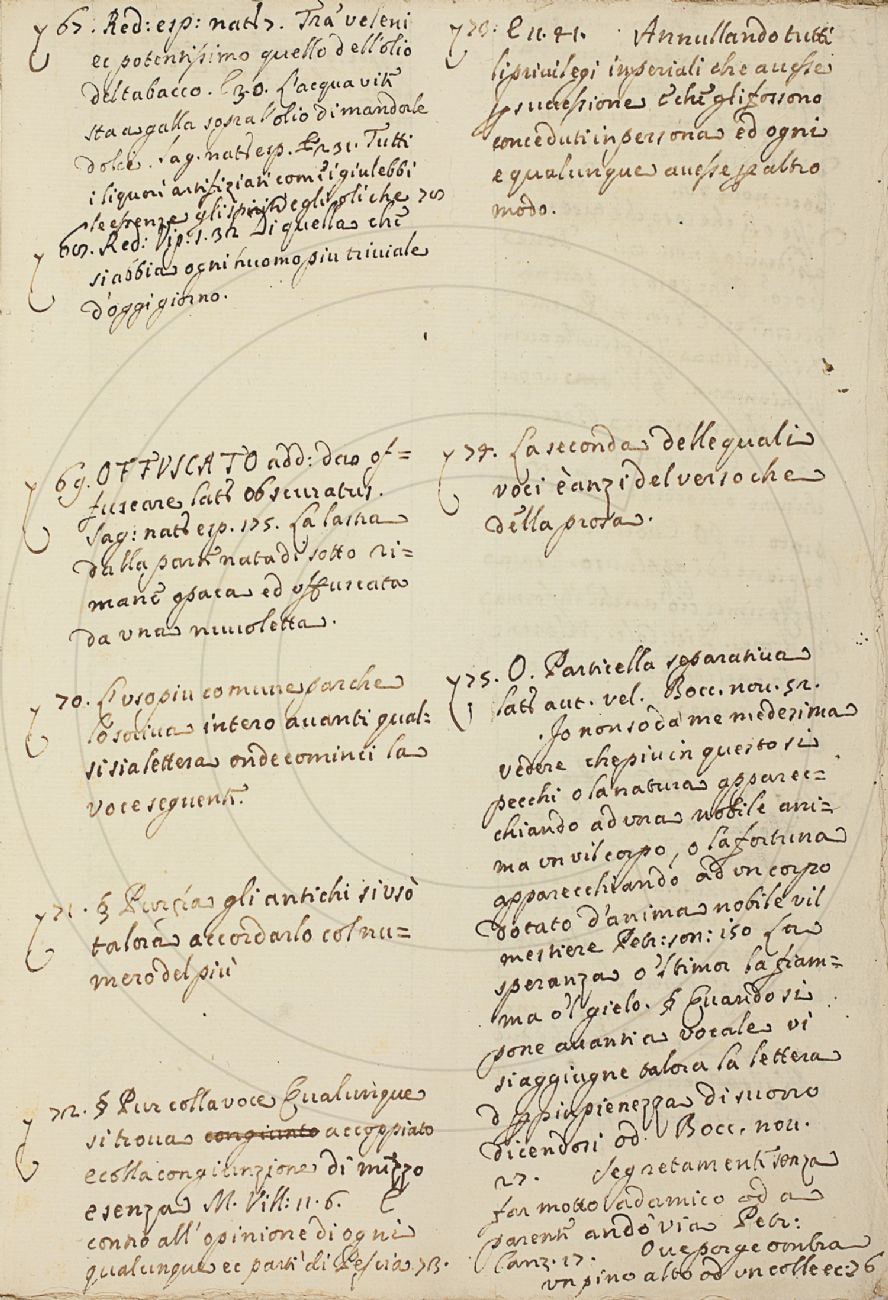 67. Red: esp: nat: 7. Tra' veleni
ec potentissimo quello dell'olio
del tabacco. E 30. L'acquavite
sta a galla sopra l'olio di mandorle
dolce. Sag. nat: esp. 231. Tutti
i liquori artifiziati com'i giulebbi
le essenze gli spiriti e gli olj che 78
68. Red: Vip: 1. 32 Di quella che
si abbia ogni huomo piu triviale
d'oggi giorno.
69. OFFVSCATO add: da of=
fuscare lat: obscuratus.
Sag: nat: esp. 175. La lastra
dalla parte nata di sotto ri=
mane opaca ed offuscata
da una nuvoletta.
70. L'uso piu comune par che
lo scriva intero avanti qual=
si sia lettera onde cominci la
voce seguente.
71. § Pur gli antichi si usò
talora accordarlo col nu=
mero del più
72. § Pur colla voce Qualunque
si trova congiunto accoppiato
e colla congiunzione di mezzo
e senza M. Vill: 11. 6. E
contro all'opinione di ogni
qualunque ec parti di Pescia 73.
73. E 11. 41. Annullando tutti
li privilegi inperiali che avesse
p successione e che gli fossono
conceduti in persona ed ogni
e qualunque avesse p altro
modo.
74. La seconda delle quali
voci è anzi del verso che
della prosa.
75. O. Particella separativa
lat: aut. vel. Bocc. nov. 52.
Jo non sò da me medesima
vedere che piu in questo si
pecchi o la natura apparec=
chiando ad una nobile ani=
ma un vil corpo, o la fortuna
apparecchiando ad un corpo
dotato d'anima nobile vil
mestiere Petr: son: 150 La
speranza o 'l timor la fiam=
ma o 'l gielo. § Quando si
pone avanti a vocale vi
si aggiugne talora la lettera
d p piu pienezza di suono
dicendosi od Bocc. nov.
27. Segretamente senza
far motto ad amico od a
parente andò via Petr:
Canz. 17. Ove porge ombra
un pino alto od un colle ec: 76